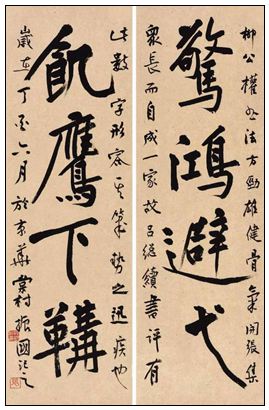 柳公權書法方勁雄健骨氣開張集
驚鴻避弋
眾長而自成一家故呂總續書評有
此數字形容其筆勢之迅疾也
飢鷹下鞲
歲在丁六月於京華棠村振國記之